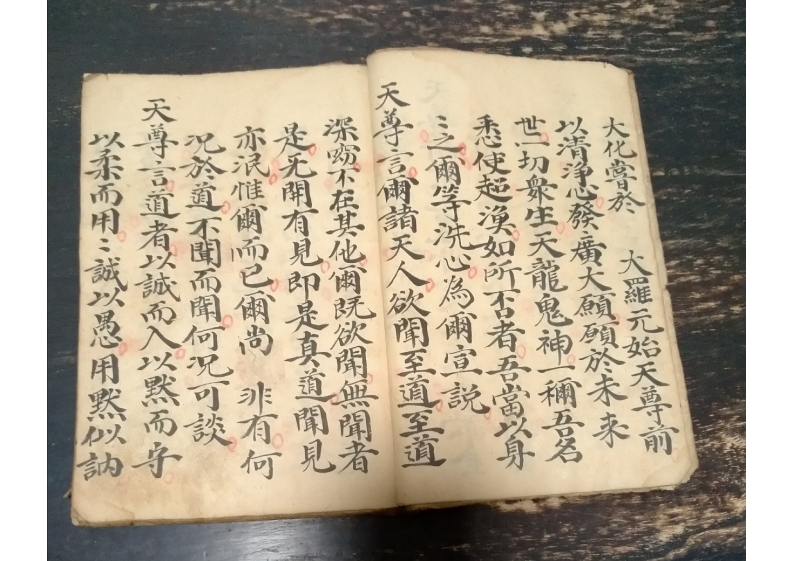 大化嘗於　大羅元始天尊前
以清淨心發廣大願願於未来
世一切衆生天龍鬼神一稱吾名
悉使超渙如所否者吾當以身
〻之爾等洗心為爾宣説
天尊言爾諸天人欲聞至道至道
深窈不在其他爾既欲聞無聞者
是旡聞有見即是真道聞見
亦泯惟爾而已爾尚　非有何
况於道不聞而聞何况可談
天尊言道者以誠而入以黙而守
以柔而用〻誠以愚用黙似訥